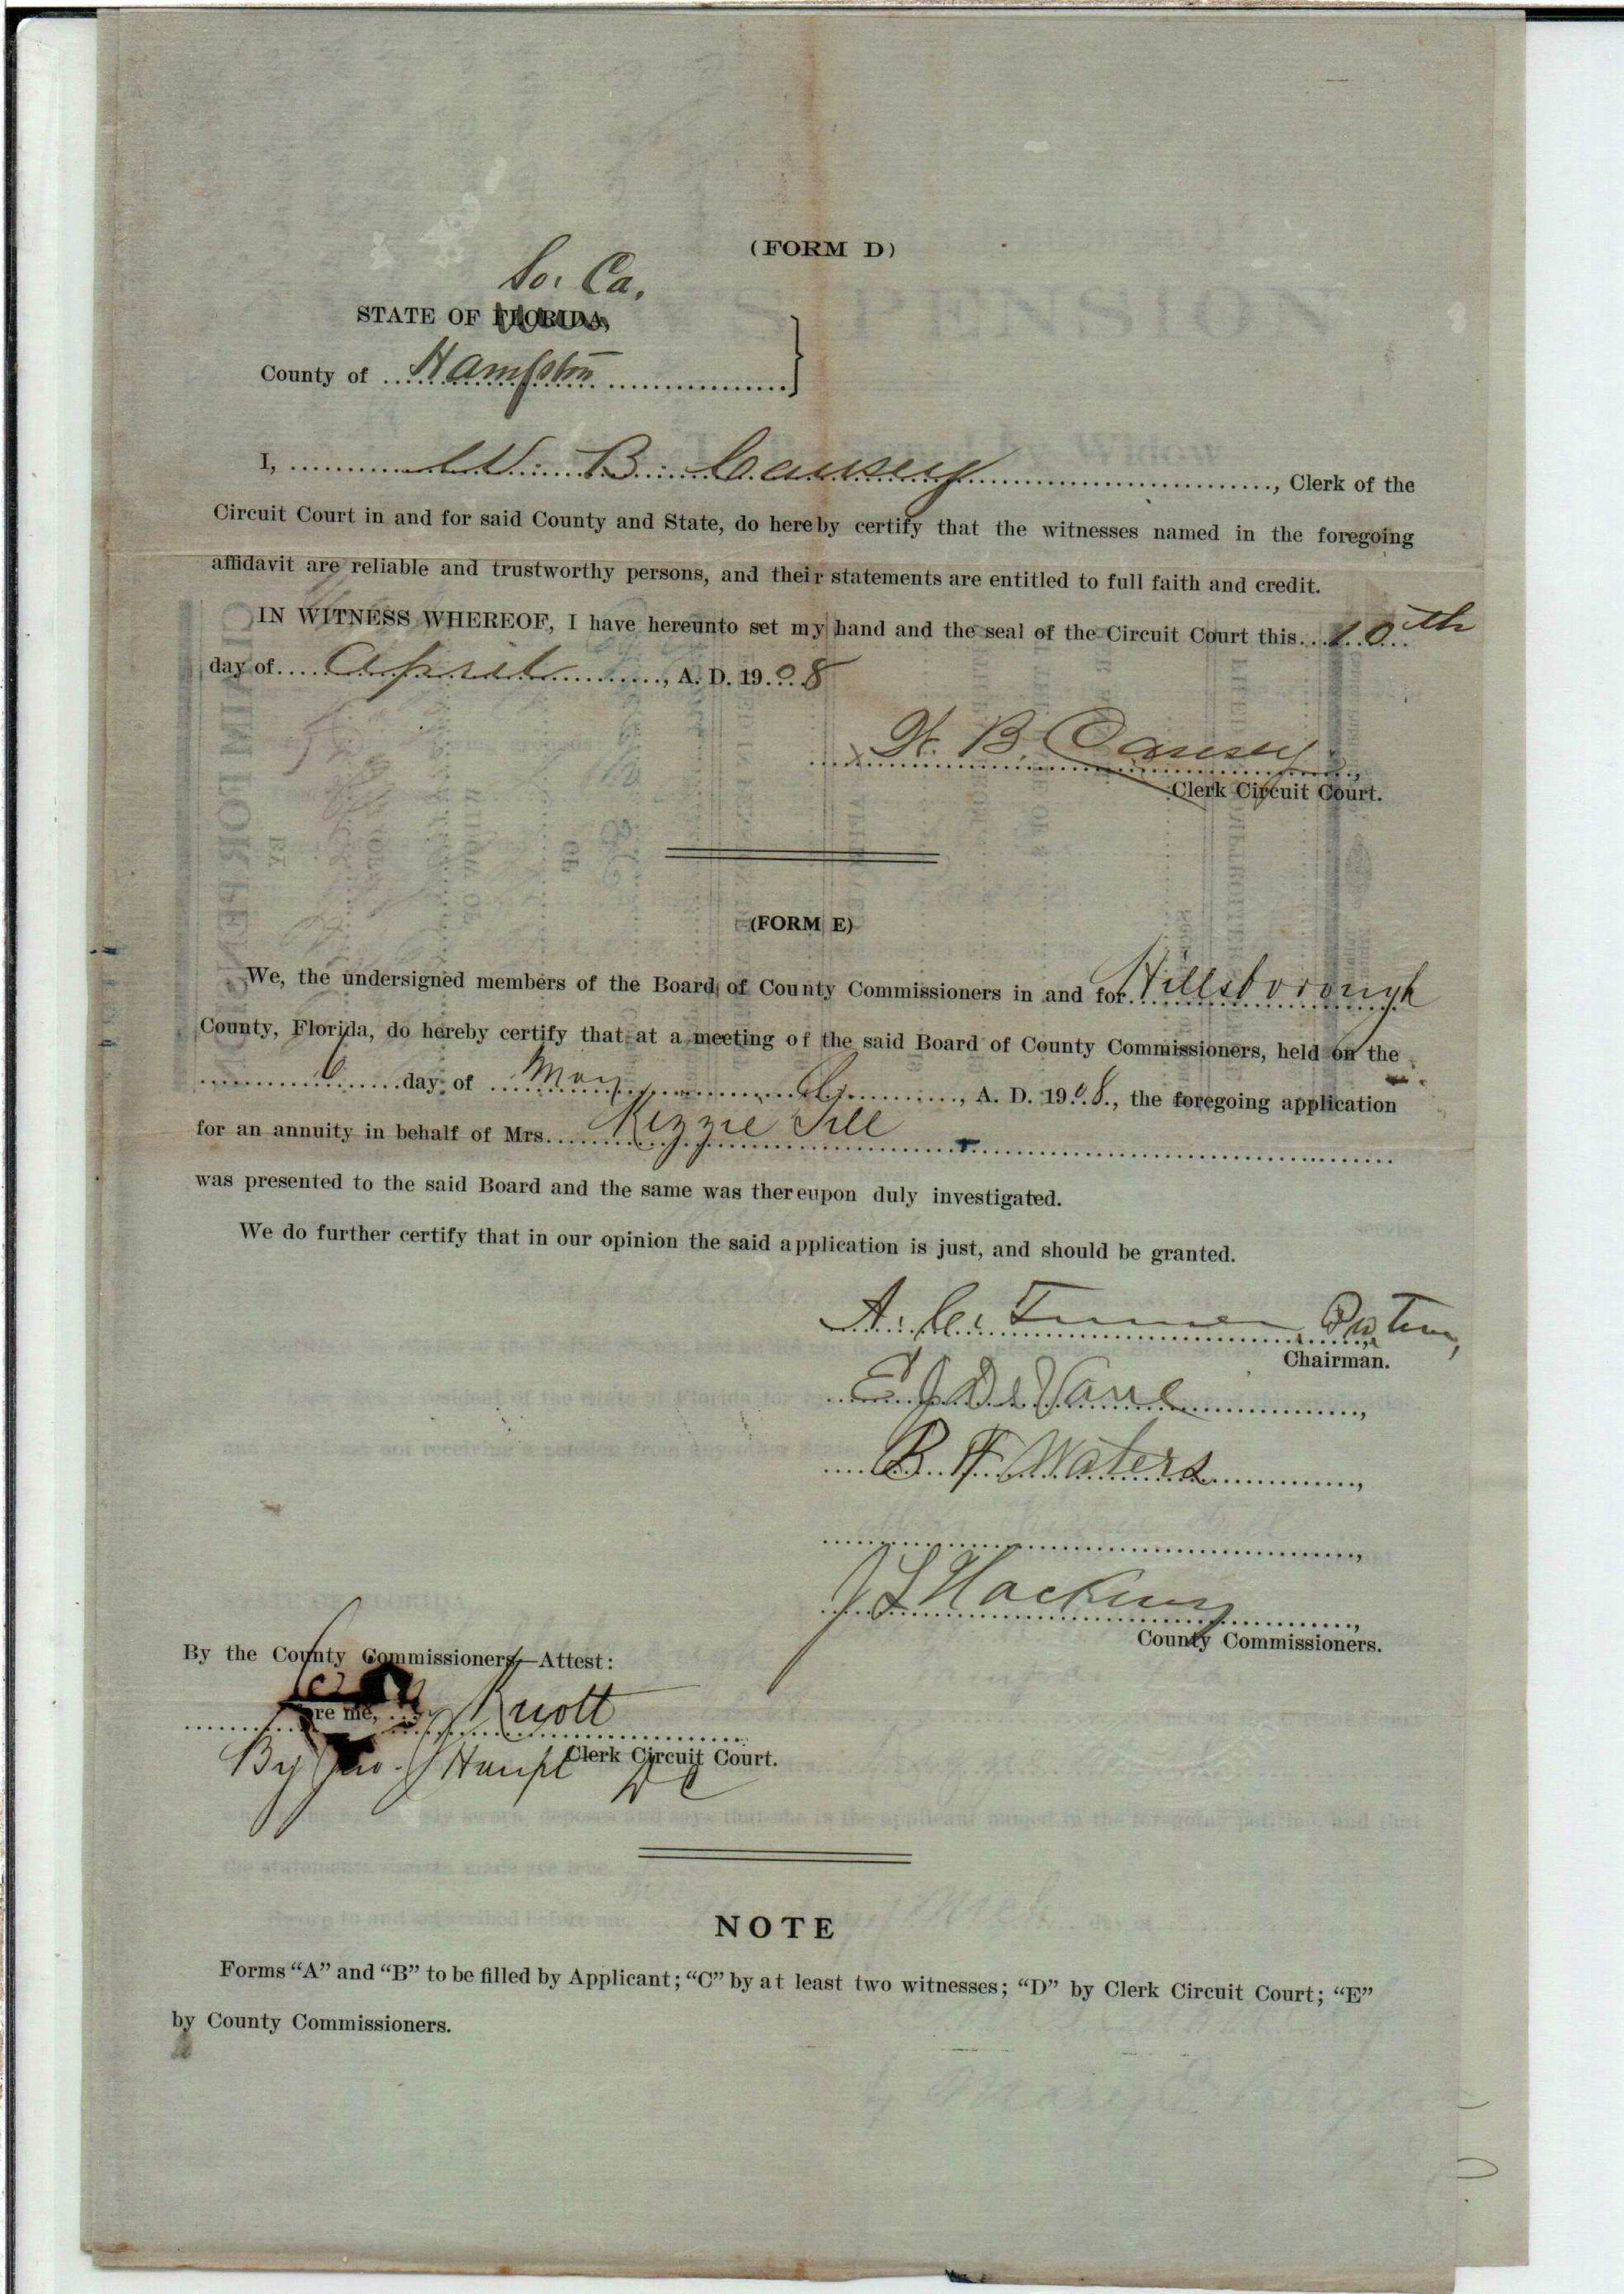 (FORM D)
So. Ca.
STATE OF FLORIDA,
County of Hampton
I, W. B. Causey, Clerk of the
Circuit Court in and for said County and State, do hereby certify that the witnesses named in the foregoing
affidavit are reliable and trustworthy persons, and their statements are entitled to full faith and credit.
IN WITNESS WHEREOF, I have hereunto set my hand and the seal of the Circuit Court this 10th
day of April, A. D. 1908
W. B. Causey,
Clerk Circuit Court.
(FORM E)
We, the undersigned members of the Board of County Commissioners in and for Hillsborough
County, Florida, do hereby certify that at a meeting of the said Board of County Commissioners, held on the
6 day of May, A. D. 1908., the foregoing application
for an annuity in behalf of Mrs. Kizzie Till
was presented to the said Board and the same was thereupon duly investigated.
We do further certify that in our opinion the said application is just, and should be granted.
A. C. Turner Pro Tem,
Chairman.
E J DeVane,
B. F. Waters,
J L Hackney,
County Commissioners.
By the County Commissioners—Attest:
re me, Knott
Clerk Circuit Court.
By Jno. J Haupt DC
NOTE
Forms “A” and “B” to be filled by Applicant; “C” by at least two witnesses; “D” by Clerk Circuit Court; “E”
by County Commissioners.